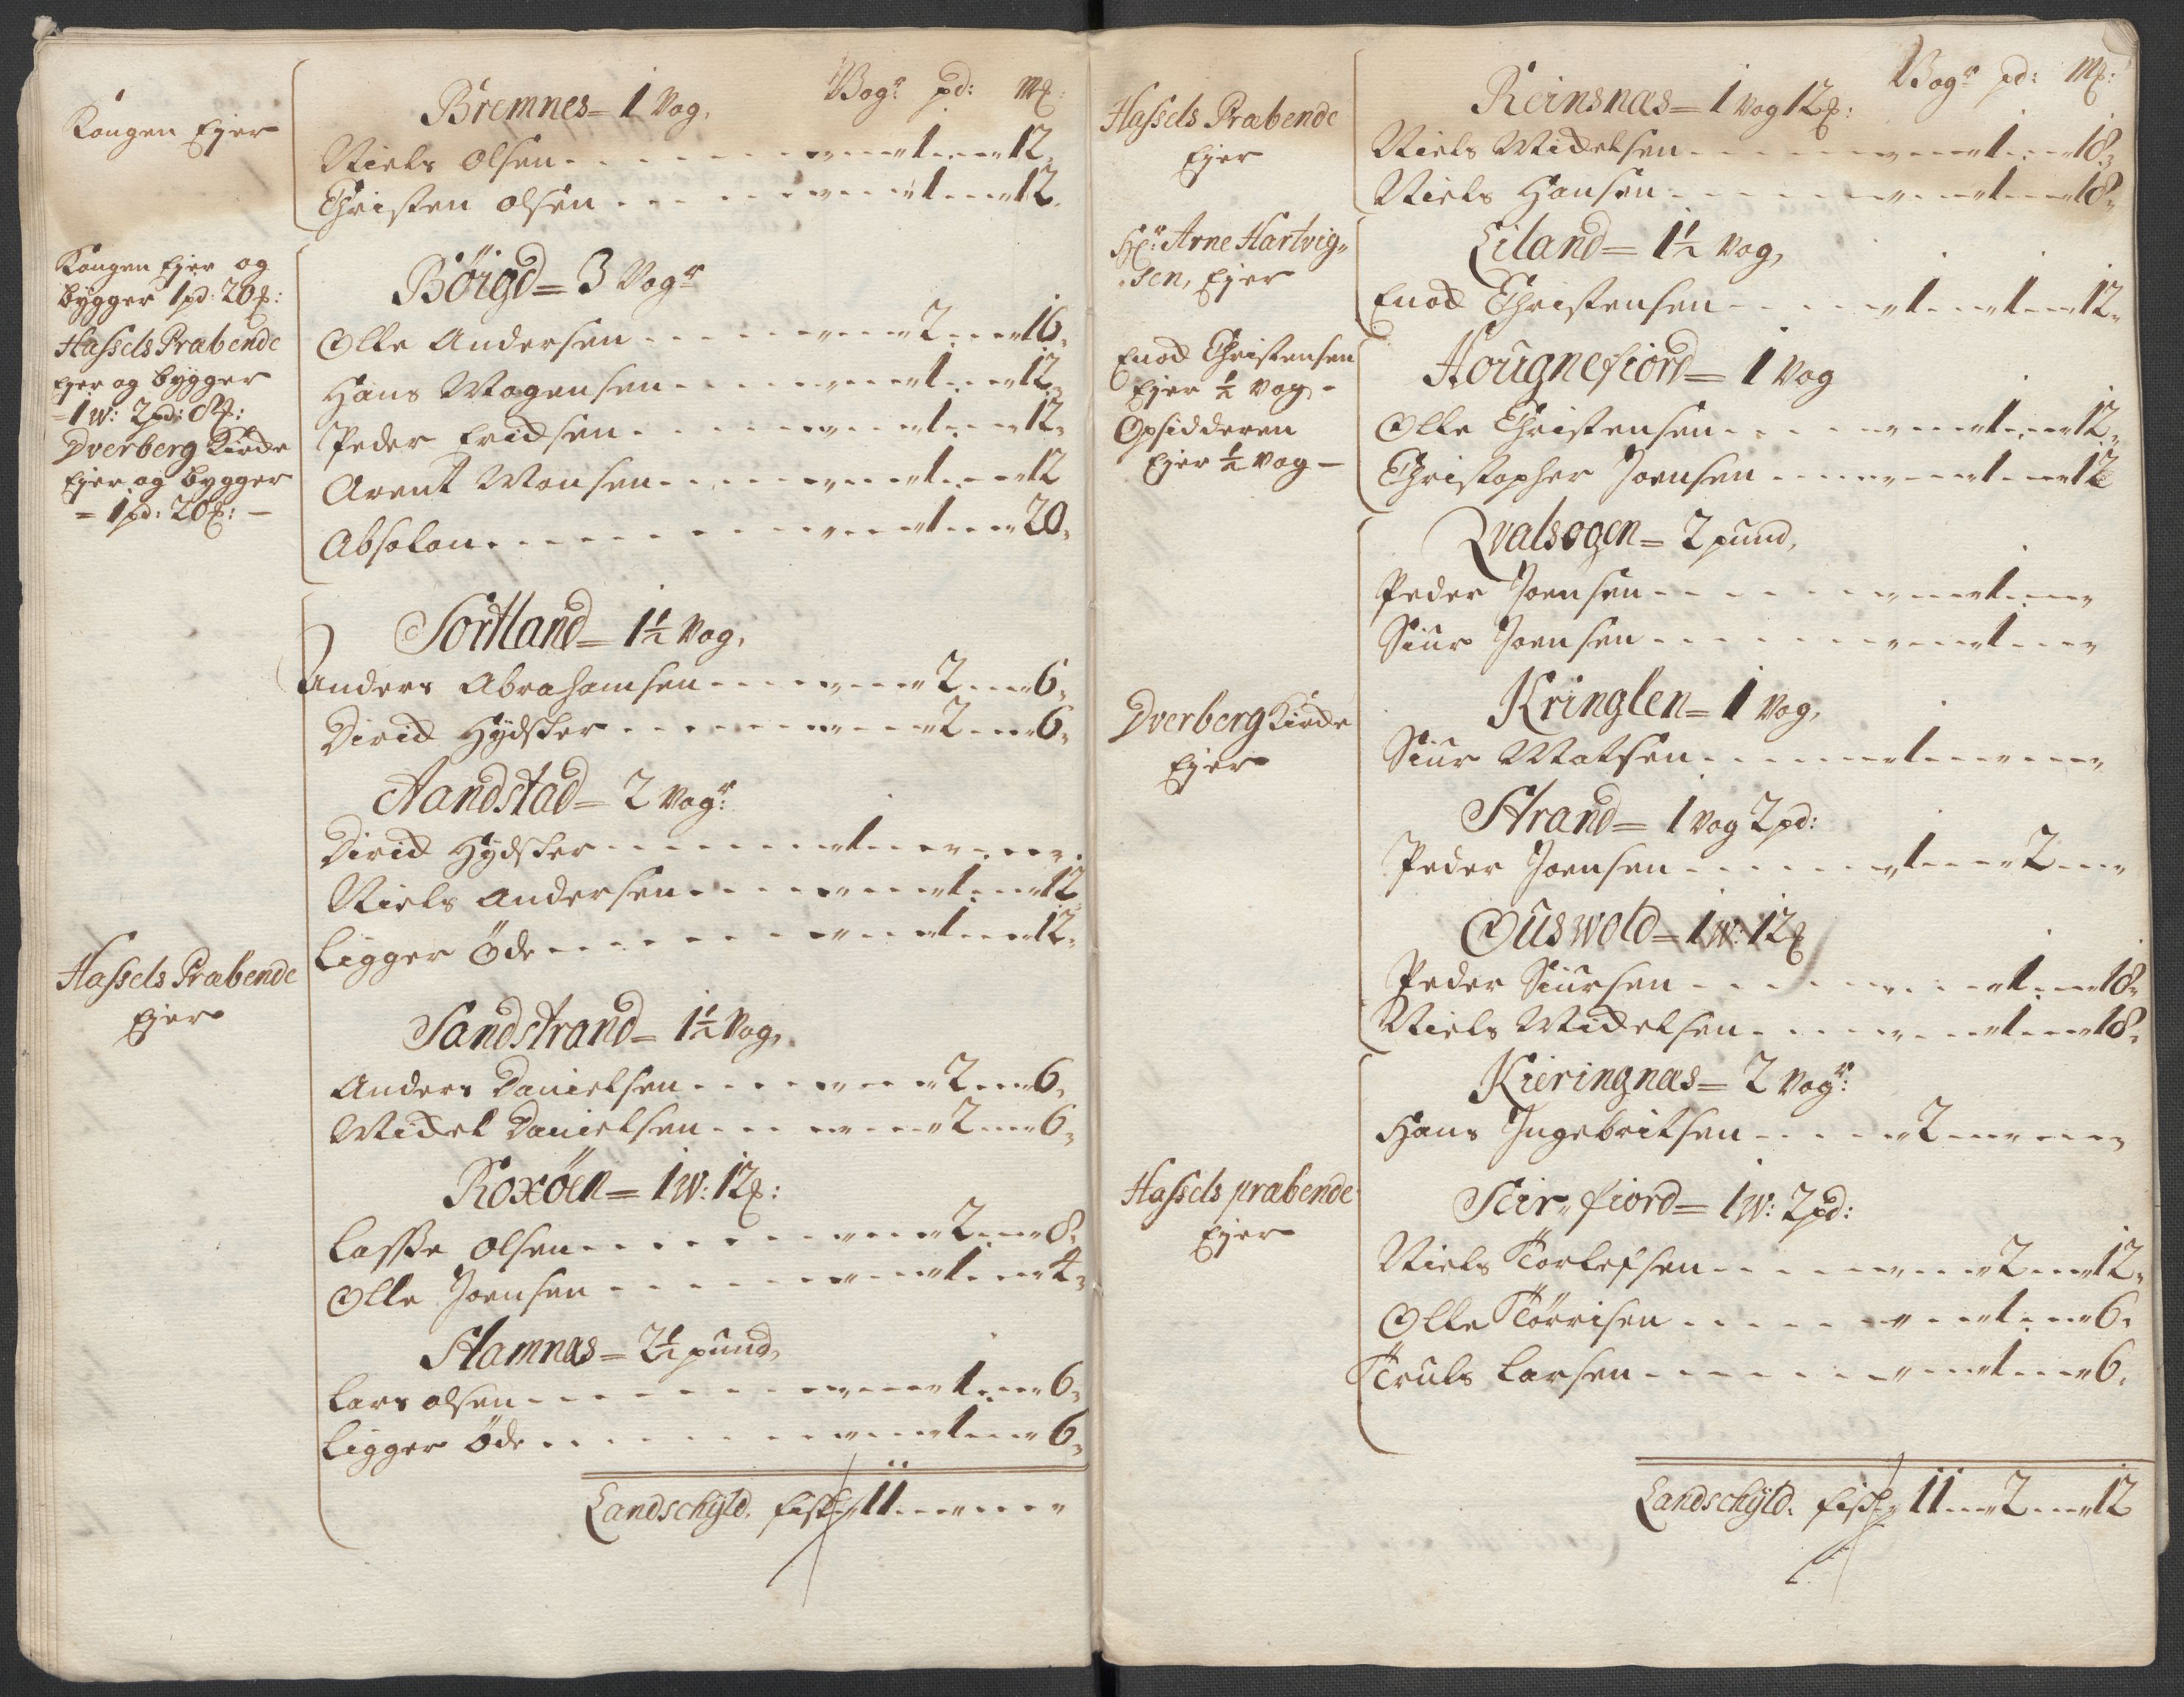 Kongen Ejer
Bremnes = 1 Vog,
Wogr pd: M:
Niels Olsen - - - 1 - - 12,
Christen Olsen - - - 1 - - 12,
Kongen Ejer og
bygger 1 pd: 20:
Hassels Præbende
Ejer og bygger
= 1 w: 2 pd: 8:
Dverberg Kircke
Ejer og bygger
= 1 pd: 20: —
Böigd = 3 Vogr
Olle Andersen - - - 2 - - 16,
Hans Mogensen - - - 1 - - 12,
Peder Ericksen - - - 1 - - 12,
Arent Monsen - - - 1 - - 12
Absolon - - - 1 - - 20,
Sortland = 1½ Vog,
Anders Abrahamsen - - - 2 - - 6,
Dirick Hydsker - - - 2 - - 6,
Aandstad = 2 Vogr:
Dirick Hydsker - - - 1 - - -
Niels Andersen - - - 1 - - 12,
ligger Öde - - - 1 - - 12,
Hassels Præbende
Ejer
Sandstrand = 1½ Vog,
Anders Danielsen - - - 2 - - 6,
Mickel Danielsen - - - 2 - - 6,
Roxöen = 1 w: 12:
Lasse Olsen - - - 2 - - 8,
Olle Joensen - - - 1 - - 4,
Stamnæs = 2½ pund,
Lars Olsen - - - 1 - - 6,
ligger Öde - - - 1 - - 6,
Landschyld, fisk 11 - - -
Hassels Præbende
Ejer
Reinsnæs = 1 Vog 12:
Wogr pd: M:
Niels Mickelsen - - - 1 - - 18,
Niels Hansen - - - 1 - - 18,
Hr: Arne Hartvig„
„sen, Ejer
Eiland = 1½ Vog,
Enock Christensen - - - 1 - - 1 - - 12,
Enock Christensen
Ejer ½ Vog -
Opsidderen
Ejer ½ Vog —
Hougnefiord = 1 Vog
Olle Christensen - - - 1 - - 12,
Christopher Joensen - - - 1 - - 12
Qvalsogen = 2 pund,
Peder Joensen - - - 1 - - -
Siur Joensen - - - 1 - - -
Dverberg Kircke
Ejer
Kringlen = 1 Vog,
Siur Matsen - - - 1 - - -
Strand = 1 Vog 2 pd:
Peder Joensen - - - 1 - - 2 - -
Ouswold = 1 w: 12
Peder Siursen - - - 1 - - 18,
Niels Mickelsen - - - 1 - - 18,
Kieringnæs = 2 Vogr:
Hans Ingebritsen - - - 2 - - -
Hassels præbende
Ejer
Sier„fiord = 1 w: 2 pd:
Niels Torlefsen - - - 2 - - 12,
Olle Törrisen - - - 1 - - 6,
Truls Larsen - - - 1 - - 6,
Landschyld, fisk 11 - - 2 - - 12